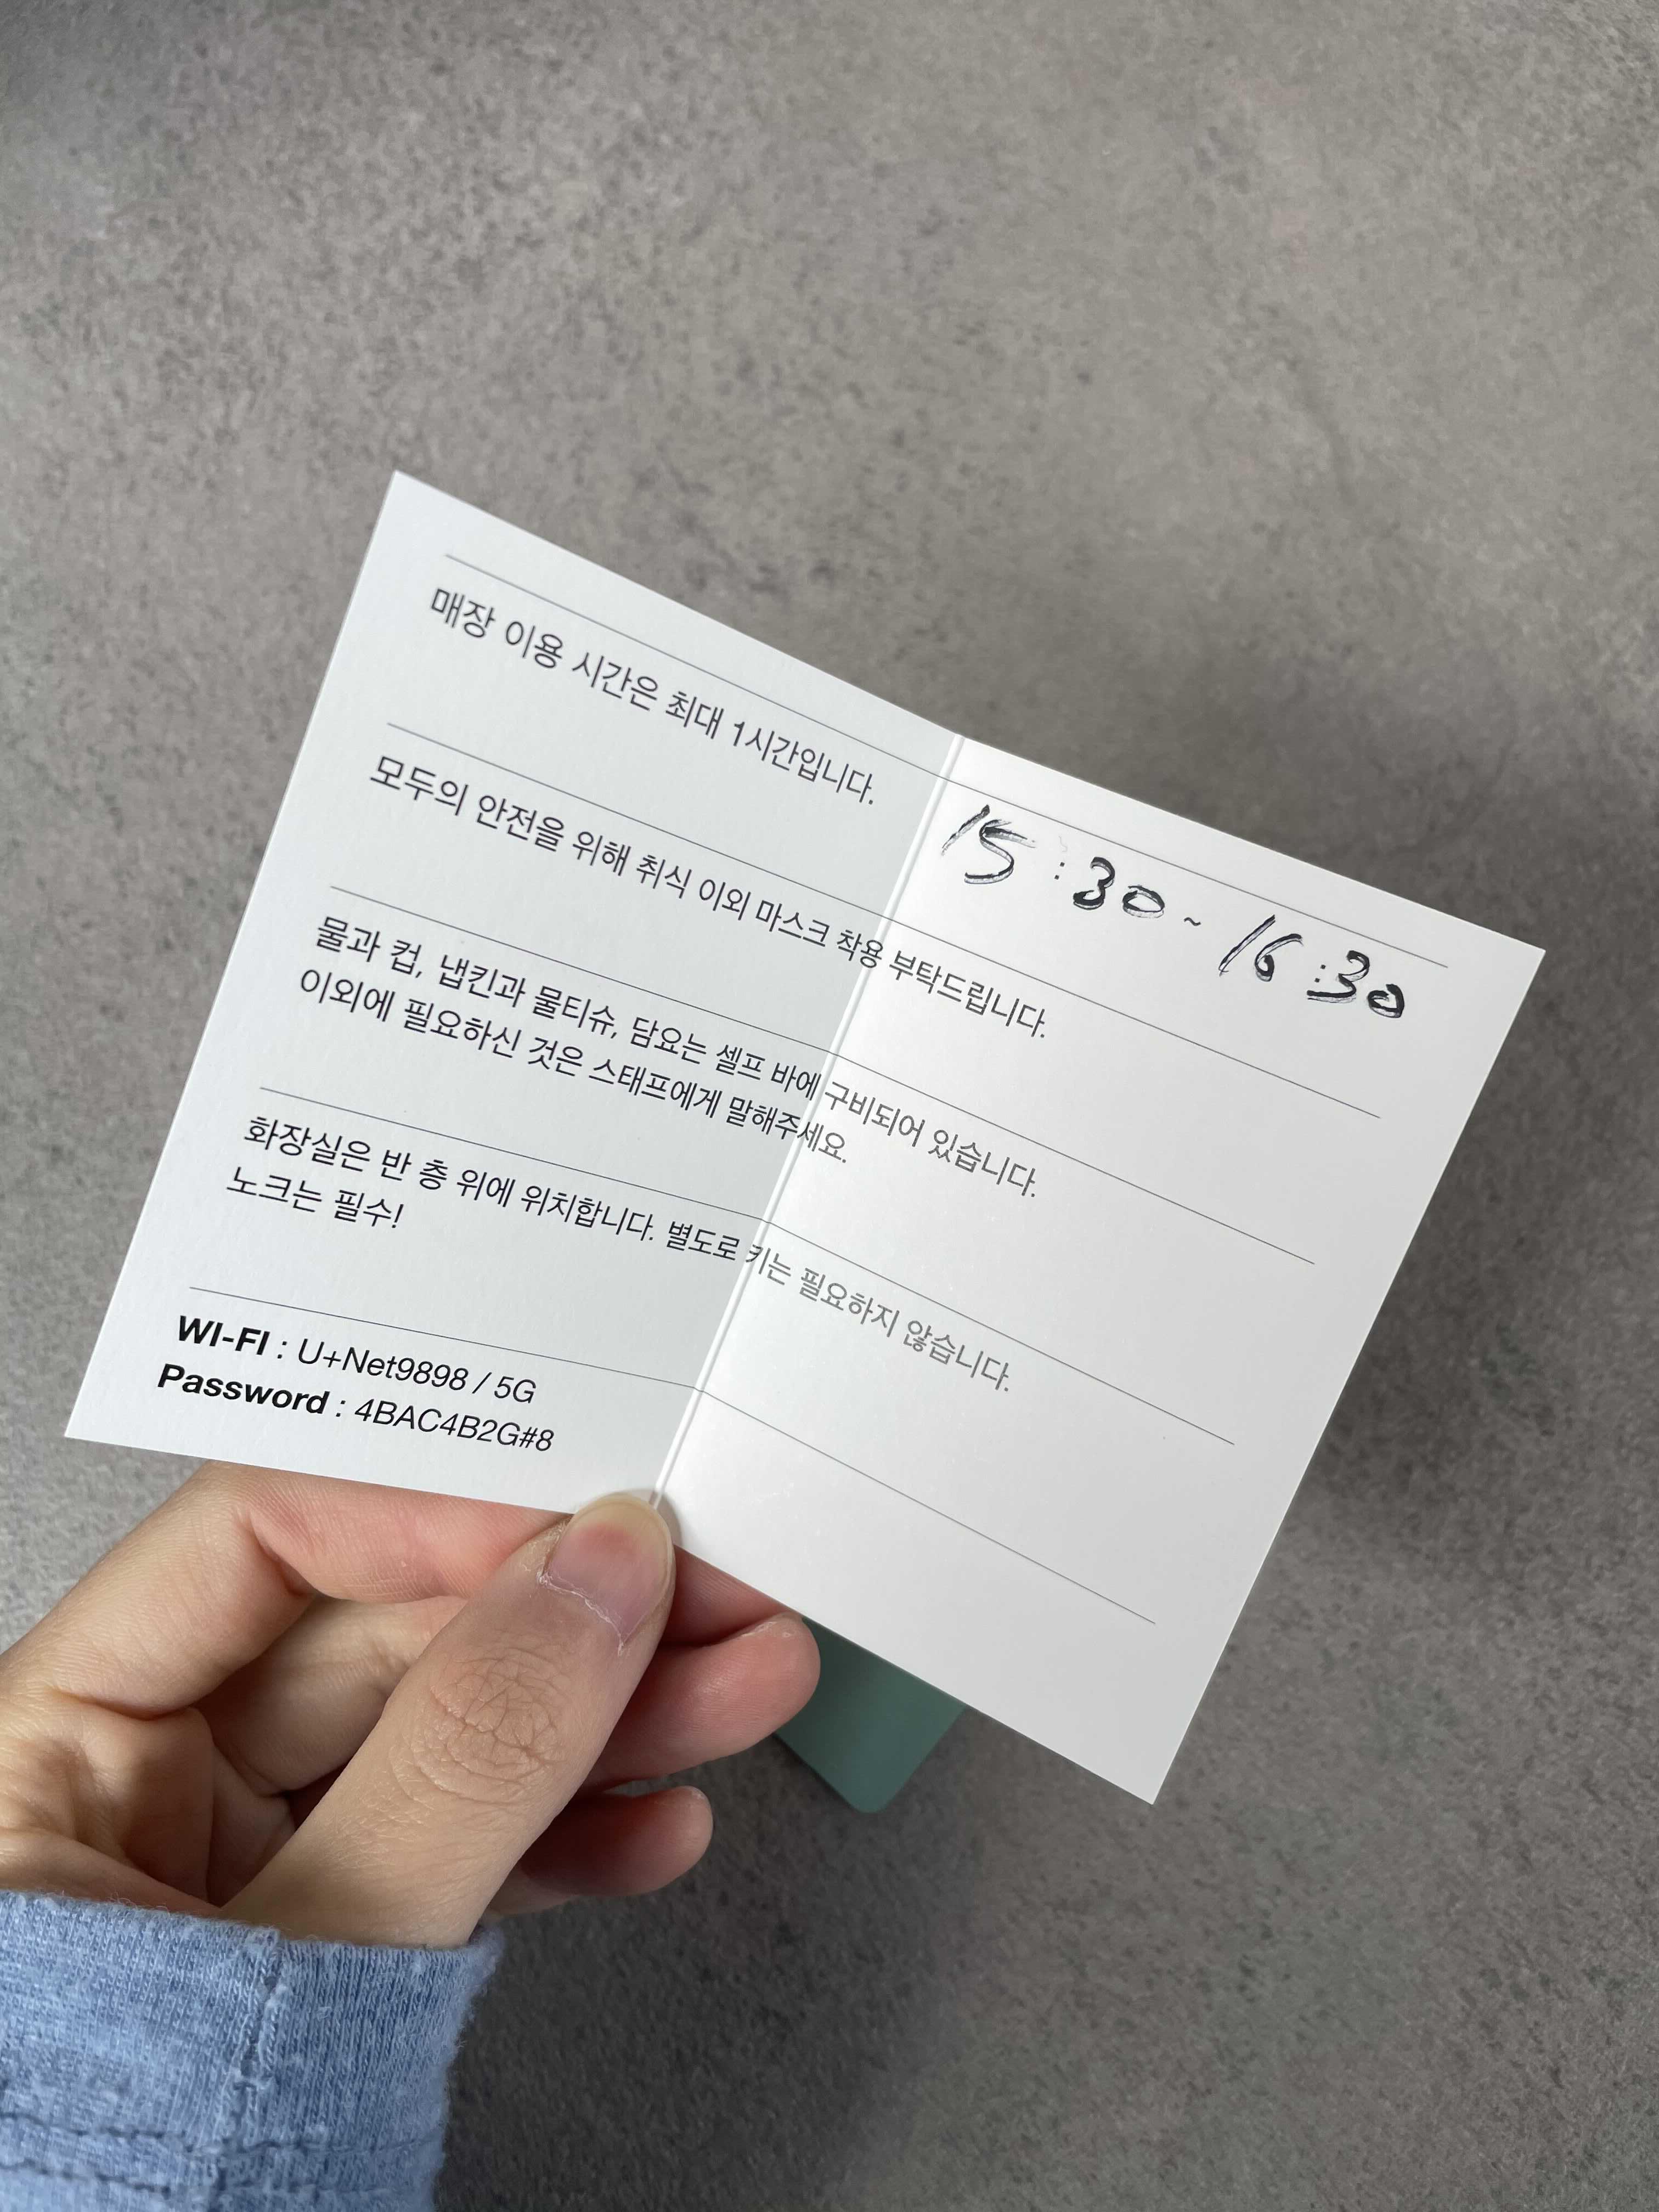 매장 이용 시간은 최대 1시간입니다.
15:30~16:30
모두의 안전을 위해 취식 이외 마스크 착용 부탁드립니다.
물과 컵, 냅킨과 물티슈, 담요는 셀프 바에 구비되어 있습니다.
이외에 필요하신 것은 스태프에게 말해주세요.
화장실은 반 층 위에 위치합니다. 별도로 키는 필요하지 않습니다.
노크는 필수!
WI-FI : U+Net9898 / 5G
Password : 4BAC4B2G#8